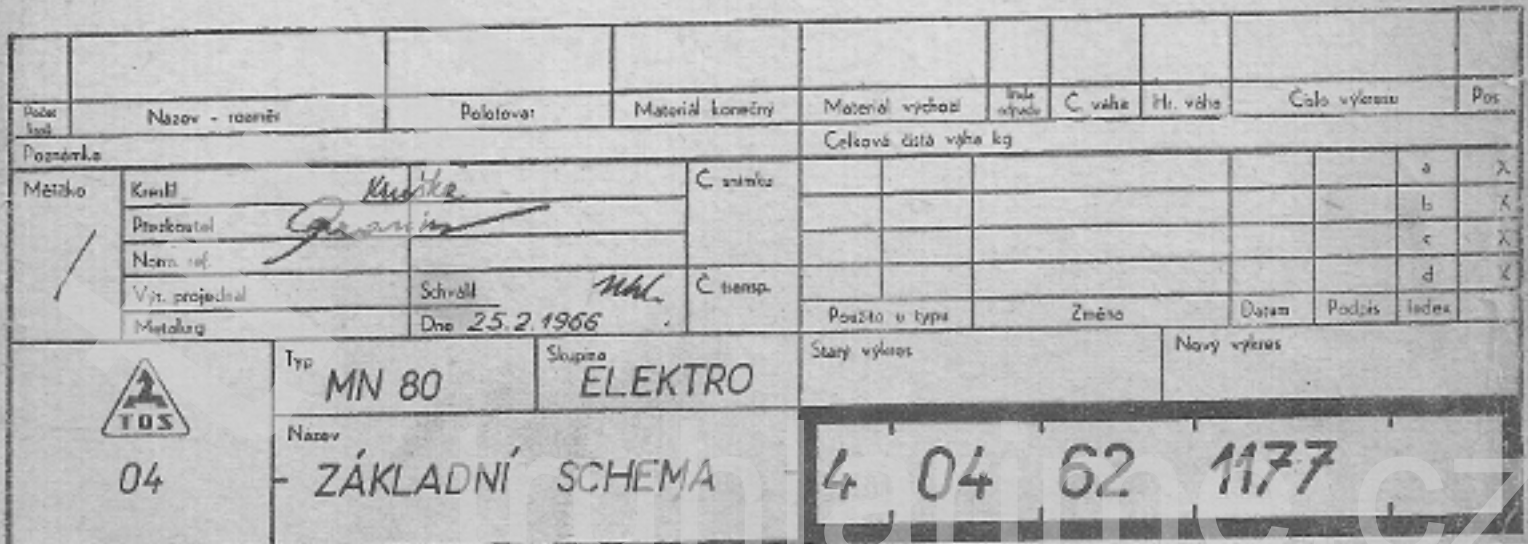 Počet kusů Název - rozměr Polotovar Materiál konečný Materiál výchozí Třída odpadu Č. váha Hr. váha Číslo výkresu Pos.
Poznámka Celková čistá váha kg
Měřítko Kreslil Č. snímku a x
Přezkoušel b x
Norm. ref. c x
Výr. projednal Schválil Č. transp. d x
Metalurg Dne 25.2.1966 Použito u typu Změna Datum Podpis Index
Typ MN 80 Skupina ELEKTRO Starý výkres Nový výkres
TOS
Název
04 - ZÁKLADNÍ SCHEMA - 4 04 62 1177